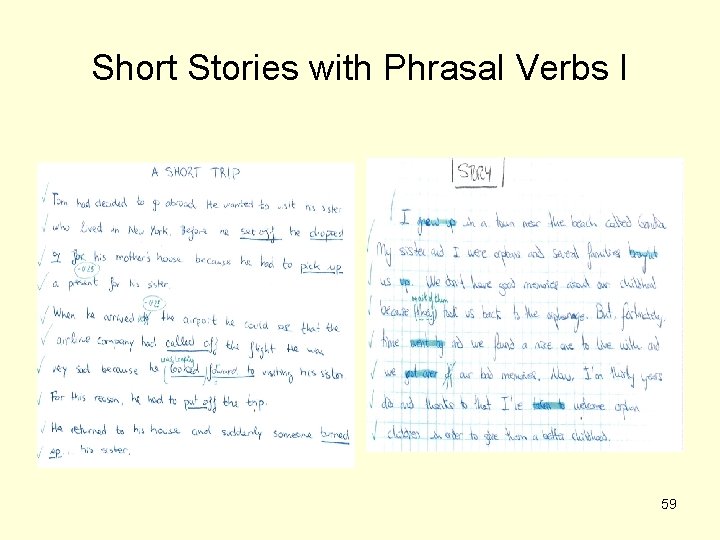 Short Stories with Phrasal Verbs I
A SHORT TRIP
Tom had decided to go abroad. He wanted to visit his sister
who lived in New York. Before he set off he dropped
for his mother's house because he had to pick up
-0'25
a present for his sister.
-0'25
When he arrived the airport he could see that the
airline company had called off the flight. He was
was looking
very sad because he looked forward to visiting his sister
For this reason, he had to put off the trip.
He returned to his house and suddenly someone turned
up... his sister.
STORY
I grew up in a town near the beach called
My sister and I were orphans and several families brought
us up. We don't have good memories about our childhood
most of them
because they took us back to the orphanage. But, fortunately,
time went by and we found a nice one to live with and
we got over our bad memories. Now, I'm thirty years
old and thanks to that I've taken to welcome orphan
children in order to give them a better childhood.
59